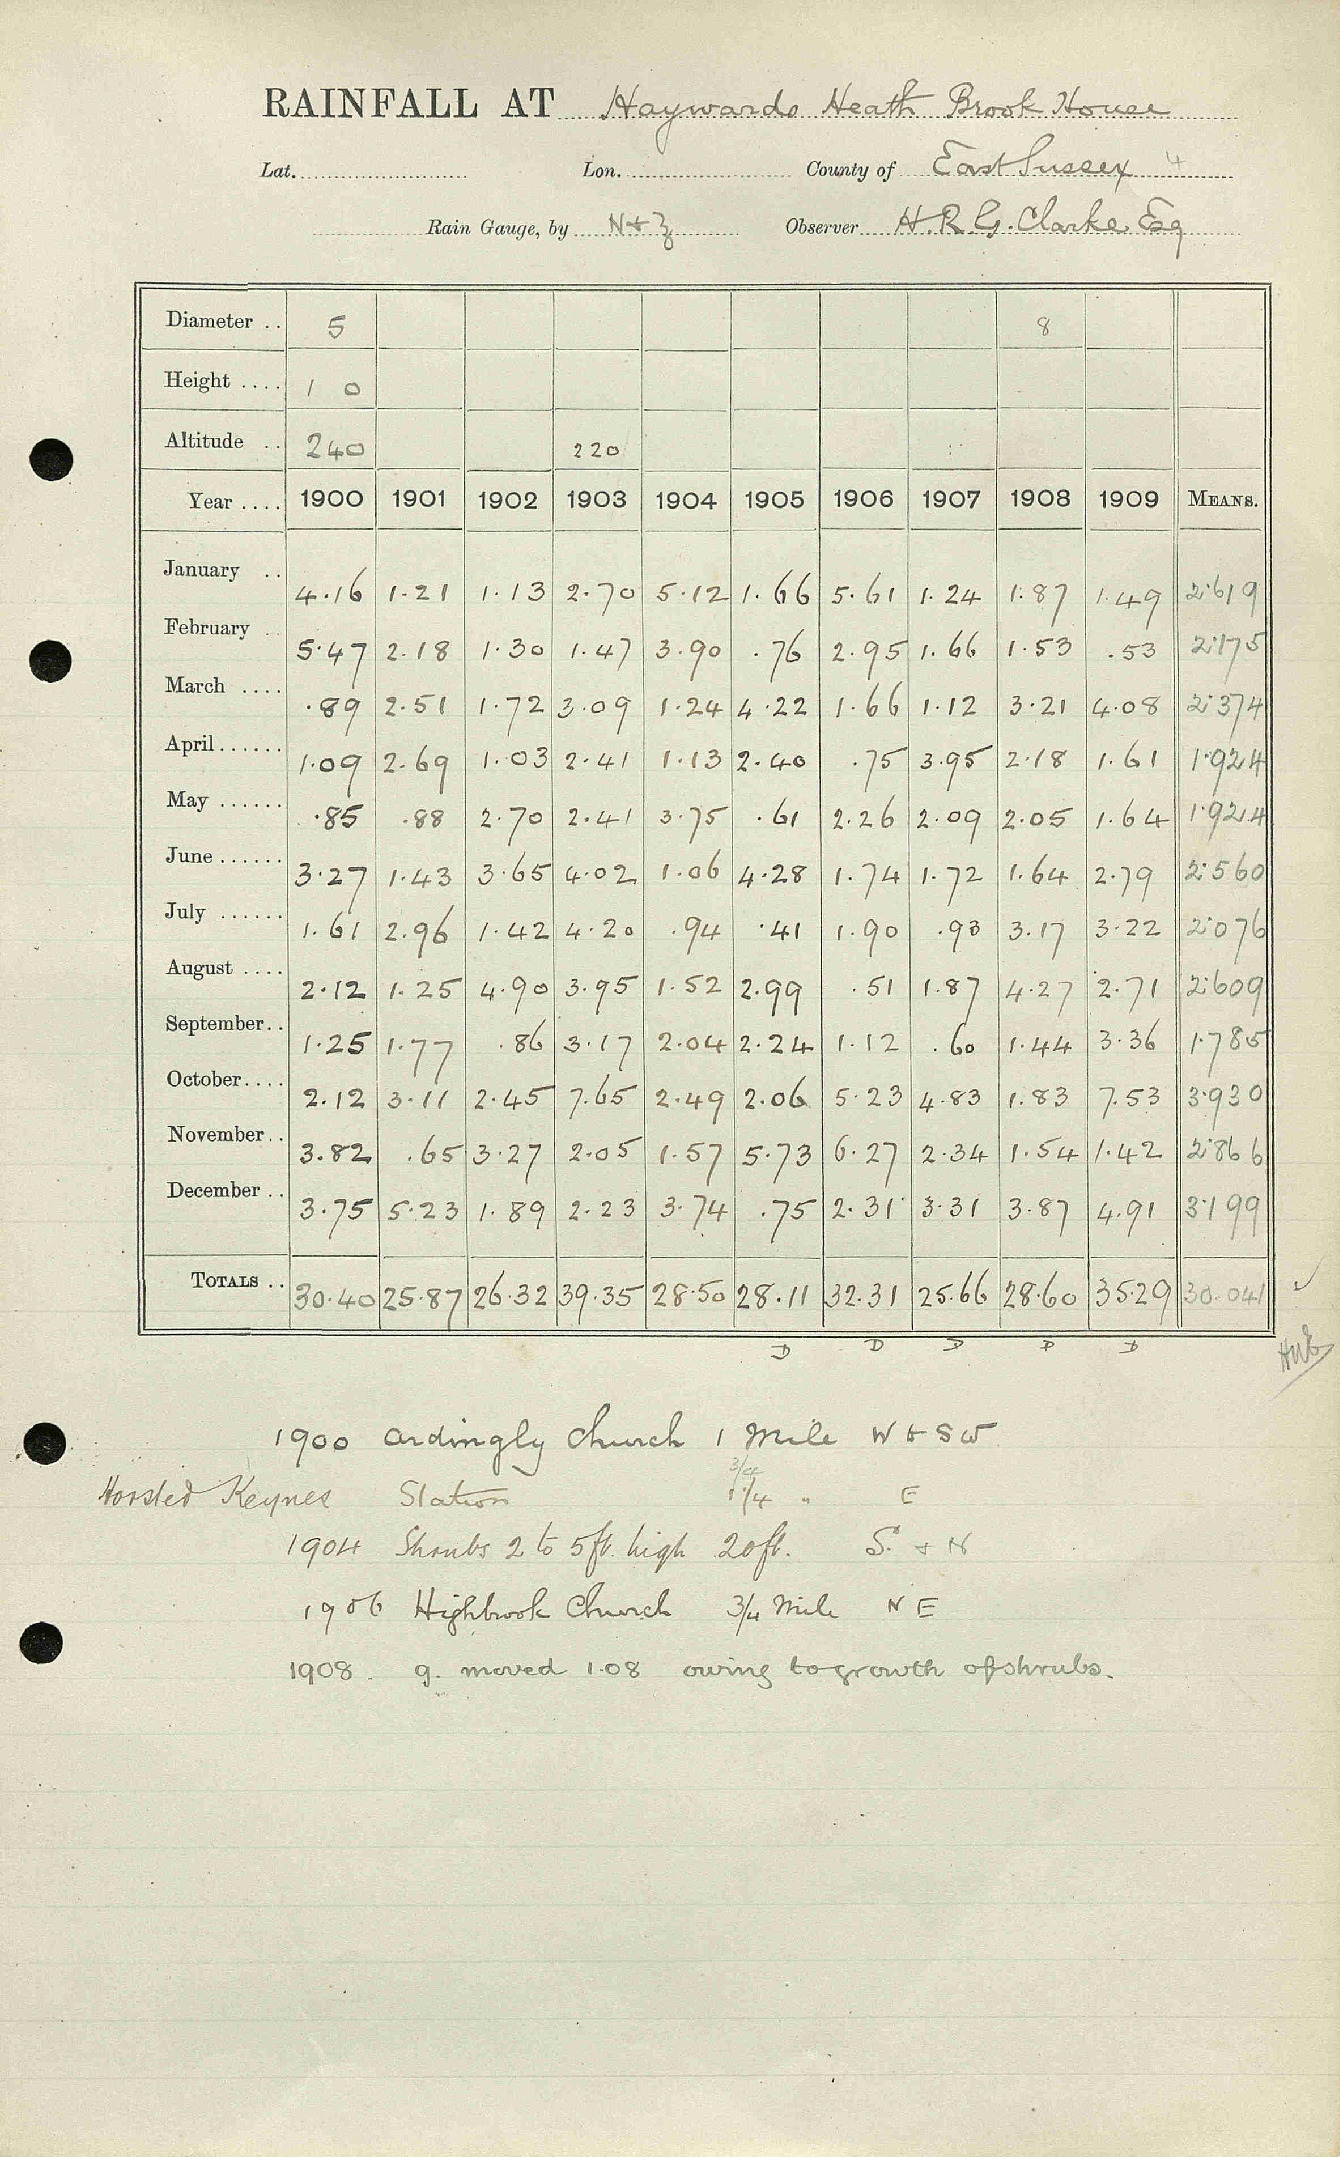 RAINFALL AT Haywards Heath Brook House
Lat. Lon. County of East Sussex 4
Rain Gauge, by N & Z Observer H. R. G. Clarke Esq
Diameter .. 5 8
Height .... 1 0
Altitude .. 240 220
Year .... 1900 1901 1902 1903 1904 1905 1906 1907 1908 1909 MEANS.
January .. 4.16 1.21 1.13 2.70 5.12 1.66 5.61 1.24 1.87 1.49 2.619
February .. 5.47 2.18 1.30 1.47 3.90 .76 2.95 1.66 1.53 .53 2.175
March .... .89 2.51 1.72 3.09 1.24 4.22 1.66 1.12 3.21 4.08 2.374
April...... 1.09 2.69 1.03 2.41 1.13 2.40 .75 3.95 2.18 1.61 1.924
May ...... .85 .88 2.70 2.41 3.75 .61 2.26 2.09 2.05 1.64 1.924
June ...... 3.27 1.43 3.65 4.02 1.06 4.28 1.74 1.72 1.64 2.79 2.560
July ...... 1.61 2.96 1.42 4.20 .94 .41 1.90 .93 3.17 3.22 2.076
August .... 2.12 1.25 4.90 3.95 1.52 2.99 .51 1.87 4.27 2.71 2.609
September.. 1.25 1.77 .86 3.17 2.04 2.24 1.12 .60 1.44 3.36 1.785
October.... 2.12 3.11 2.45 7.65 2.49 2.06 5.23 4.83 1.83 7.53 3.930
November.. 3.82 .65 3.27 2.05 1.57 5.73 6.27 2.34 1.54 1.42 2.866
December .. 3.75 5.23 1.89 2.23 3.74 .75 2.31 3.31 3.87 4.91 3.199
TOTALS .. 30.40 25.87 26.32 39.35 28.50 28.11 32.31 25.66 28.60 35.29 30.041
D D D D D
1900 Ardingly Church 1 Mile W & SW
3/4
Horsted Keynes Station 1 1/4 " E
1904 Shrubs 2 to 5 ft. high 20 ft. S. & N
1906 Highbrook Church 3/4 Mile N E
1908. g. moved 1.08 owing to growth of shrubs.